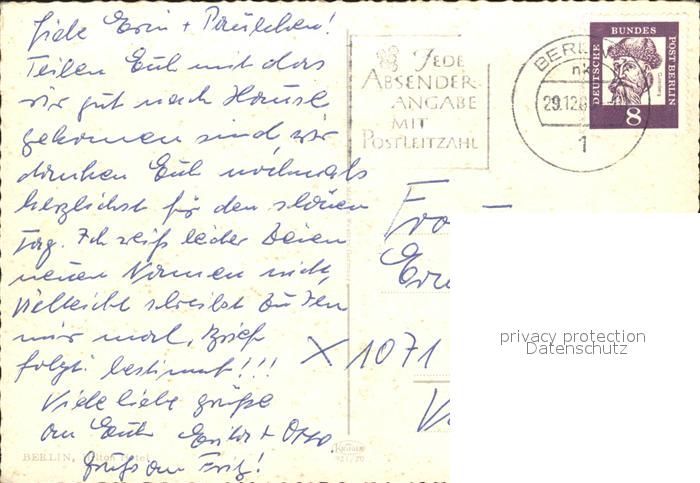 Liebe Erni + Paulchen!
Teilen Euch mit das
wir gut nach Hause
gekommen sind, wir
danken Euch nochmals
herzlichst für den schönen
Tag. Ich weiß leider Deinen
neuen Namen nicht,
vielleicht schreibst Du ihn
mir mal, Brief
folgt bestimmt!!!
Viele liebe Grüße
an Euch Erika + Otto
Gruß an Fritz!
BERLIN, Hilton Hotel
JEDE
ABSENDER-
ANGABE
MIT
POSTLEITZAHL
BERLIN
29.12.6
1
DEUTSCHE BUNDESPOST BERLIN
Gutenberg
8
Frau
X 1071
Krüger
921/20
privacy protection
Datenschutz